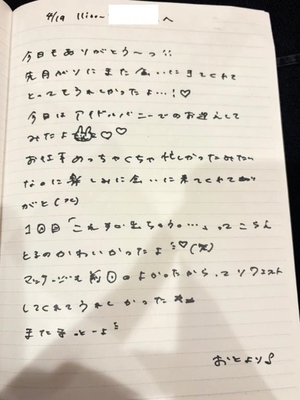 4/19 Hiro- へ
今日もありがとう〜っ!!
先月ぶりにまた会いにきてくれて
とってもうれしかったよ…!♡
今日はアイドルバニーでのお迎えして
みたよ♡♡
お仕事めっちゃくちゃ忙しかったみたい
なのに楽しみに会いに来てくれて
がと(笑)
1回目「これ 出ちゃう…」ってこらえ
てるのかわいかったよ♡(笑)
マッサージも前回のよかったからってリクエスト
してくれてうれしかった
またまっとーよ
おとより